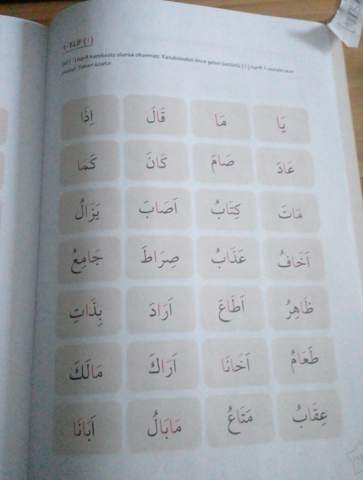 1- ELİF ( ا )
يَا مَا قَالَ إِذَا
عَادَ صَامَ كَانَ كَمَا
مَاتَ كِتَابُ أَصَابَ يَزَالُ
أَخَافُ عَذَابُ صِرَاطَ جَامِعُ
ظَاهِرُ أَطَاعَ أَرَادَ بِذَاتِ
طَعَامُ أَخَانَا أَرَاكَ مَالَكَ
عِقَابُ مَتَاعُ مَابَالُ أَبَانَا